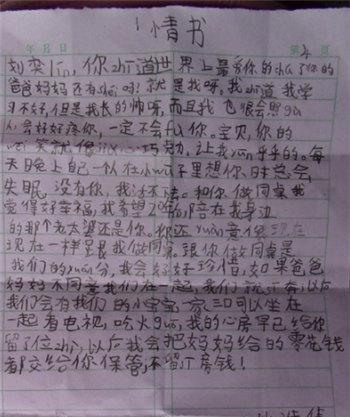 情书
年 月 日
刘奕lin，你zhi道世界上最爱你的cha了你的
爸爸妈妈还有shei吗？就是我呀。我zhi道我学
习不好，但是我长的帅呀，而且我也很会思
们会好好疼你，一定不会你。宝贝，你的
笑就像巧力，让我yun乎乎的。每
天晚上自己一人在小wo里想你时总会
失眠，没有你，我活不下去。和你做同桌我
觉得好幸福，我希望20年后陪在我身边
的那个老太婆还是你。你还yuan意像现在
现在一样是我做同桌。跟你做同桌是
我们的yuan分，我会好好珍惜，如果爸爸
妈妈不同意我们在一起，我们就，以后
我们会有我们的小宝宝一家三口可以坐在
一起看电视，吃火guo，我的心房早已给你
留了位zhi，以后我会把妈妈给的零先钱
都交给你保管，不留丁房钱！